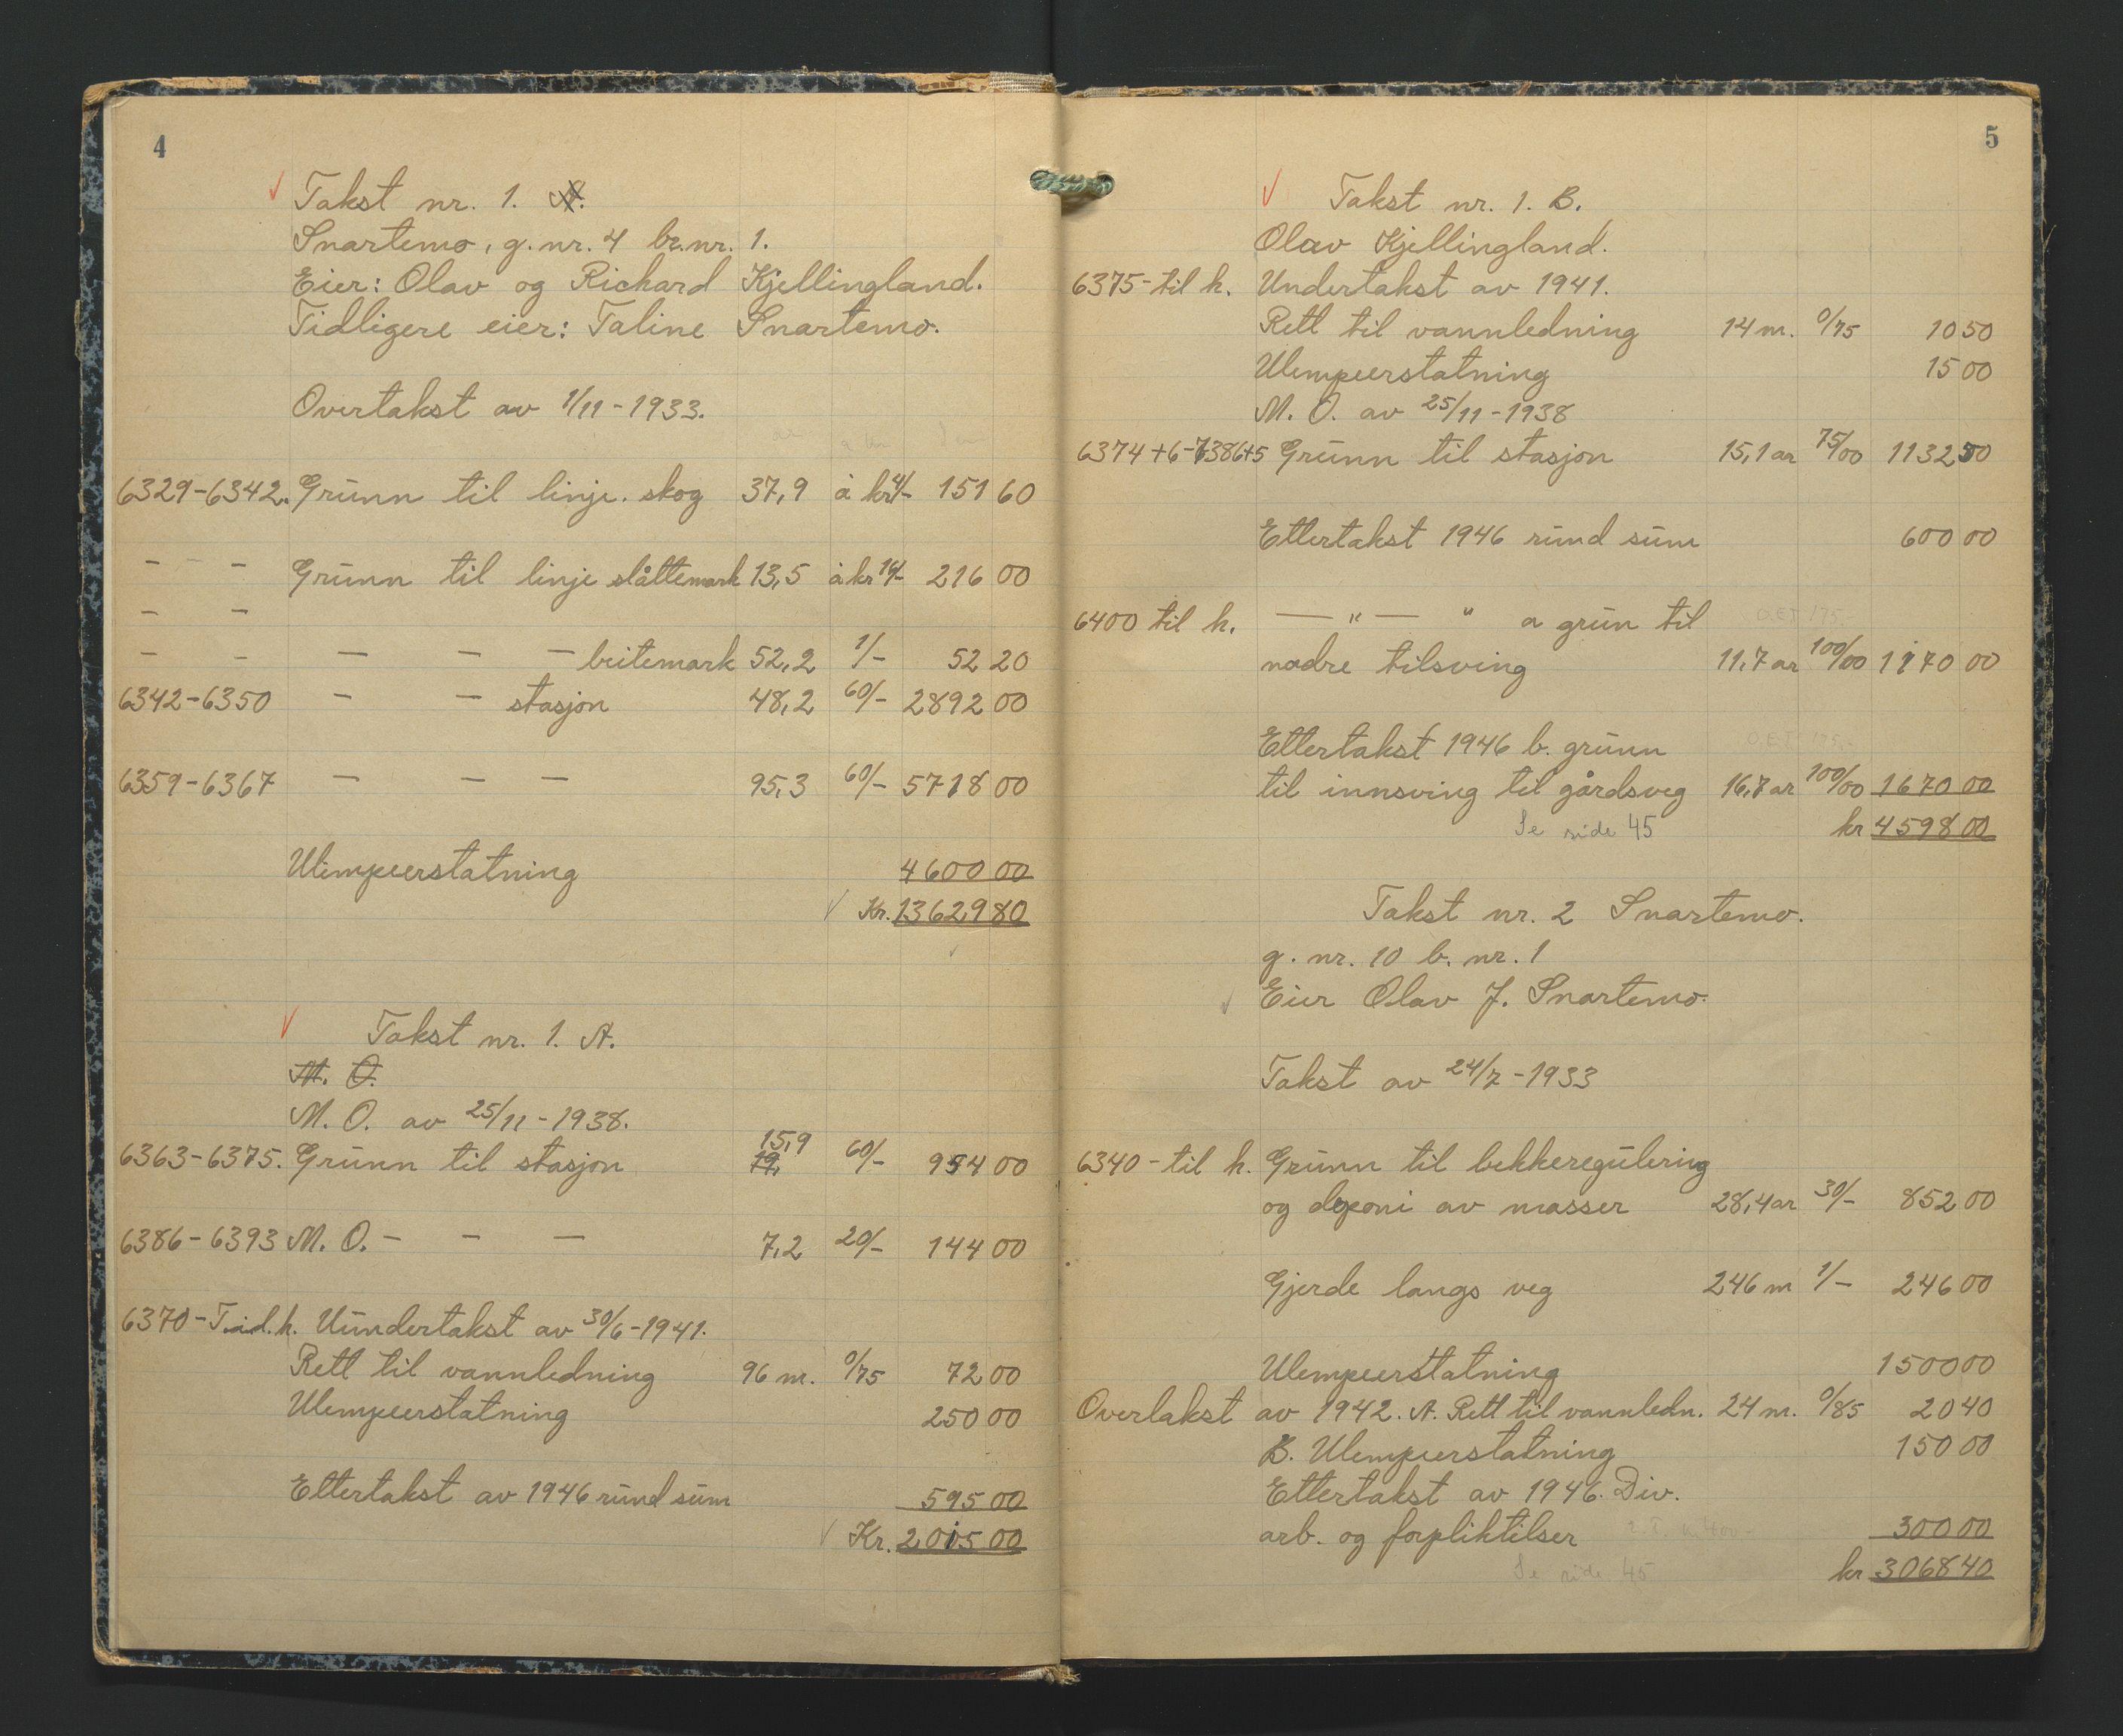 4
Takst nr. 1.
Snartemo, g.nr. 4 br.nr. 1.
Eier: Olav og Richard Kjellingland.
Tidligere eier: Taline Snartemo.
Overtakst av 1/11-1933.
6329-6342. Grunn til linje. skog 37,9 à kr 4/- 151 60
— — Grunn til linje slåttemark 13,5 à kr 16/- 216 00
— —
— — — — — beitemark 52,2 1/- 52 20
6342-6350 — — stasjon 48,2 60/- 2892 00
6359-6367 — — — 95,3 60/- 5718 00
Ulempeerstatning 4600 00
Kr. 13629 80
Takst nr. 1. A.
M. O.
M. O. av 25/11-1938.
6363-6375. Grunn til stasjon 15,9 60/- 954 00
6386-6393 M. O. — — — 7,2 20/- 144 00
6370-T.id.h. Uundertakst av 30/6-1941.
Rett til vannledning 96 m. 0/75 72 00
Ulempeerstatning 250 00
Ettertakst av 1946 rund sum 595 00
Kr. 2015 00
5
Takst nr. 1. B.
Olav Kjellingland.
6375-til h. Undertakst av 1941.
Rett til vannledning 14 m. 0/75 10 50
Ulempeerstatning 15 00
M. O. av 25/11-1938
6374+6-7386+5 Grunn til stasjon 15,1 ar 75/00 1132 50
Ettertakst 1946 rund sum 600 00
6400 til h. — " — " a grun til
nødre tilsving 11,7 ar 100/00 1170 00
Ettertakst 1946 b. grunn
til innsving til gårdsveg 16,7 ar 100/00 1670 00
Se side 45 kr 4598 00
Takst nr. 2 Snartemo.
g. nr. 10 b. nr. 1
Eier Olav J. Snartemo.
Takst av 24/7-1933
6340-til h. Grunn til bekkeregulering
og deponi av masser 28,4 ar 30/- 852 00
Gjerde langs veg 246 m 1/- 246 00
Ulempeerstatning 1500 00
Overtakst av 1942. A. Rett til vannledn. 24 m. 0/85 20 40
B. Ulempeerstatning 150 00
Ettertakst av 1946. Div.
arb. og forpliktilser 300 00
Se side 45 kr 3068 40